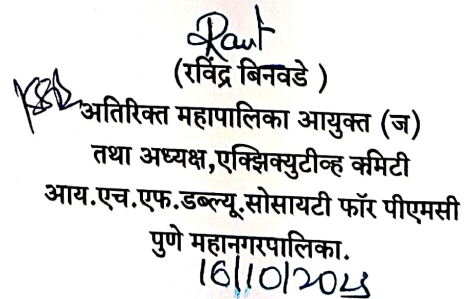 (रविंद्र बिनवडे )
अतिरिक्त महापालिका आयुक्त (ज)
तथा अध्यक्ष,एक्झिक्युटीव्ह कमिटी
आय.एच.एफ.डब्ल्यू.सोसायटी फॉर पीएमसी
पुणे महानगरपालिका.